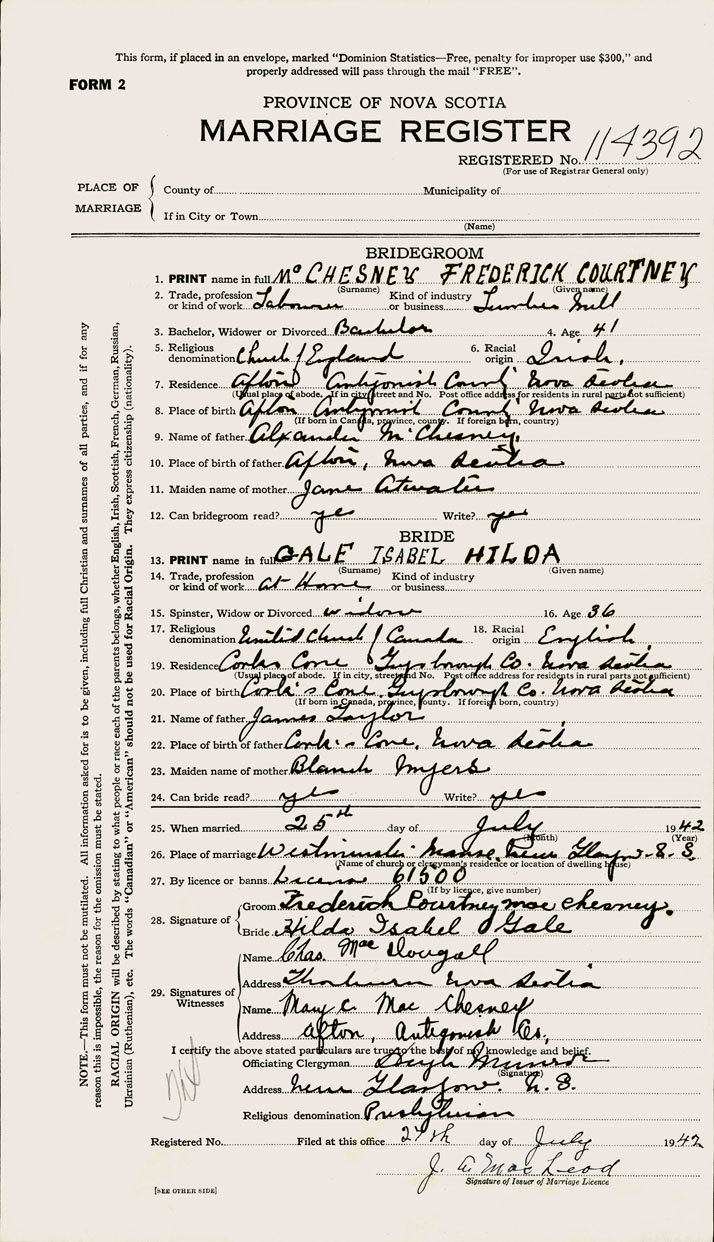 This form, if placed in an envelope, marked "Dominion Statistics—Free, penalty for improper use $300," and
properly addressed will pass through the mail "FREE".
FORM 2
PROVINCE OF NOVA SCOTIA
MARRIAGE REGISTER
REGISTERED No. 114392
(For use of Registrar General only)
PLACE OF MARRIAGE
County of Municipality of
If in City or Town
(Name)
BRIDEGROOM
1. PRINT name in full McCHESNEY FREDERICK COURTNEY
(Surname) (Given name)
2. Trade, profession or kind of work Labourer Kind of industry or business Lumber Mill
3. Bachelor, Widower or Divorced Bachelor 4. Age 41
5. Religious denomination Church / England 6. Racial origin Irish.
7. Residence Afton Antigonish County Nova Scotia
(Usual place of abode. If in city, street and No. Post office address for residents in rural parts not sufficient)
8. Place of birth Afton Antigonish County Nova Scotia
(If born in Canada, province, county. If foreign born, country)
9. Name of father Alexander McChesney.
10. Place of birth of father Afton, Nova Scotia
11. Maiden name of mother Jane Atwater
12. Can bridegroom read? yes Write? yes
BRIDE
13. PRINT name in full GALE ISABEL HILDA
(Surname) (Given name)
14. Trade, profession or kind of work At Home Kind of industry or business
15. Spinster, Widow or Divorced widow 16. Age 36
17. Religious denomination United Church / Canada 18. Racial origin English
19. Residence Cooks Cove Guysborough Co. Nova Scotia
(Usual place of abode. If in city, street and No. Post office address for residents in rural parts not sufficient)
20. Place of birth Cook's Cove, Guysborough Co. Nova Scotia
(If born in Canada, province, county. If foreign born, country)
21. Name of father James Taylor
22. Place of birth of father Cook's Cove, Nova Scotia
23. Maiden name of mother Blanch Myers
24. Can bride read? yes Write? yes
25. When married 25th day of July 1942
(Month) (Year)
26. Place of marriage Westminster Manse, New Glasgow N.S
(Name of church or clergyman's residence or location of dwelling house)
27. By licence or banns License 61500
(If by licence, give number)
28. Signature of
Groom Frederick Courtney mac chesney.
Bride Hilda Isabel Gale
29. Signatures of Witnesses
Name Chas. MacDougall
Address Thorburn Nova Scotia
Name Mary C. MacChesney
Address Afton, Antigonish Co,
I certify the above stated particulars are true to the best of my knowledge and belief.
Officiating Clergyman Munroe
(Signature)
Address New Glasgow. N.S.
Religious denomination Presbyterian
Registered No. Filed at this office 27th day of July 1942
J. A. MacLeod
Signature of Issuer of Marriage Licence
[SEE OTHER SIDE]
NOTE.—This form must not be mutilated. All information asked for is to be given, including full Christian and surnames of all parties, and if for any
reason this is impossible, the reason for the omission must be stated.
RACIAL ORIGIN will be described by stating to what people or race each of the parents belongs, whether English, Irish, Scottish, French, German, Russian,
Ukrainian (Ruthenian), etc. The words "Canadian" or "American" should not be used for Racial Origin. They express citizenship (nationality).